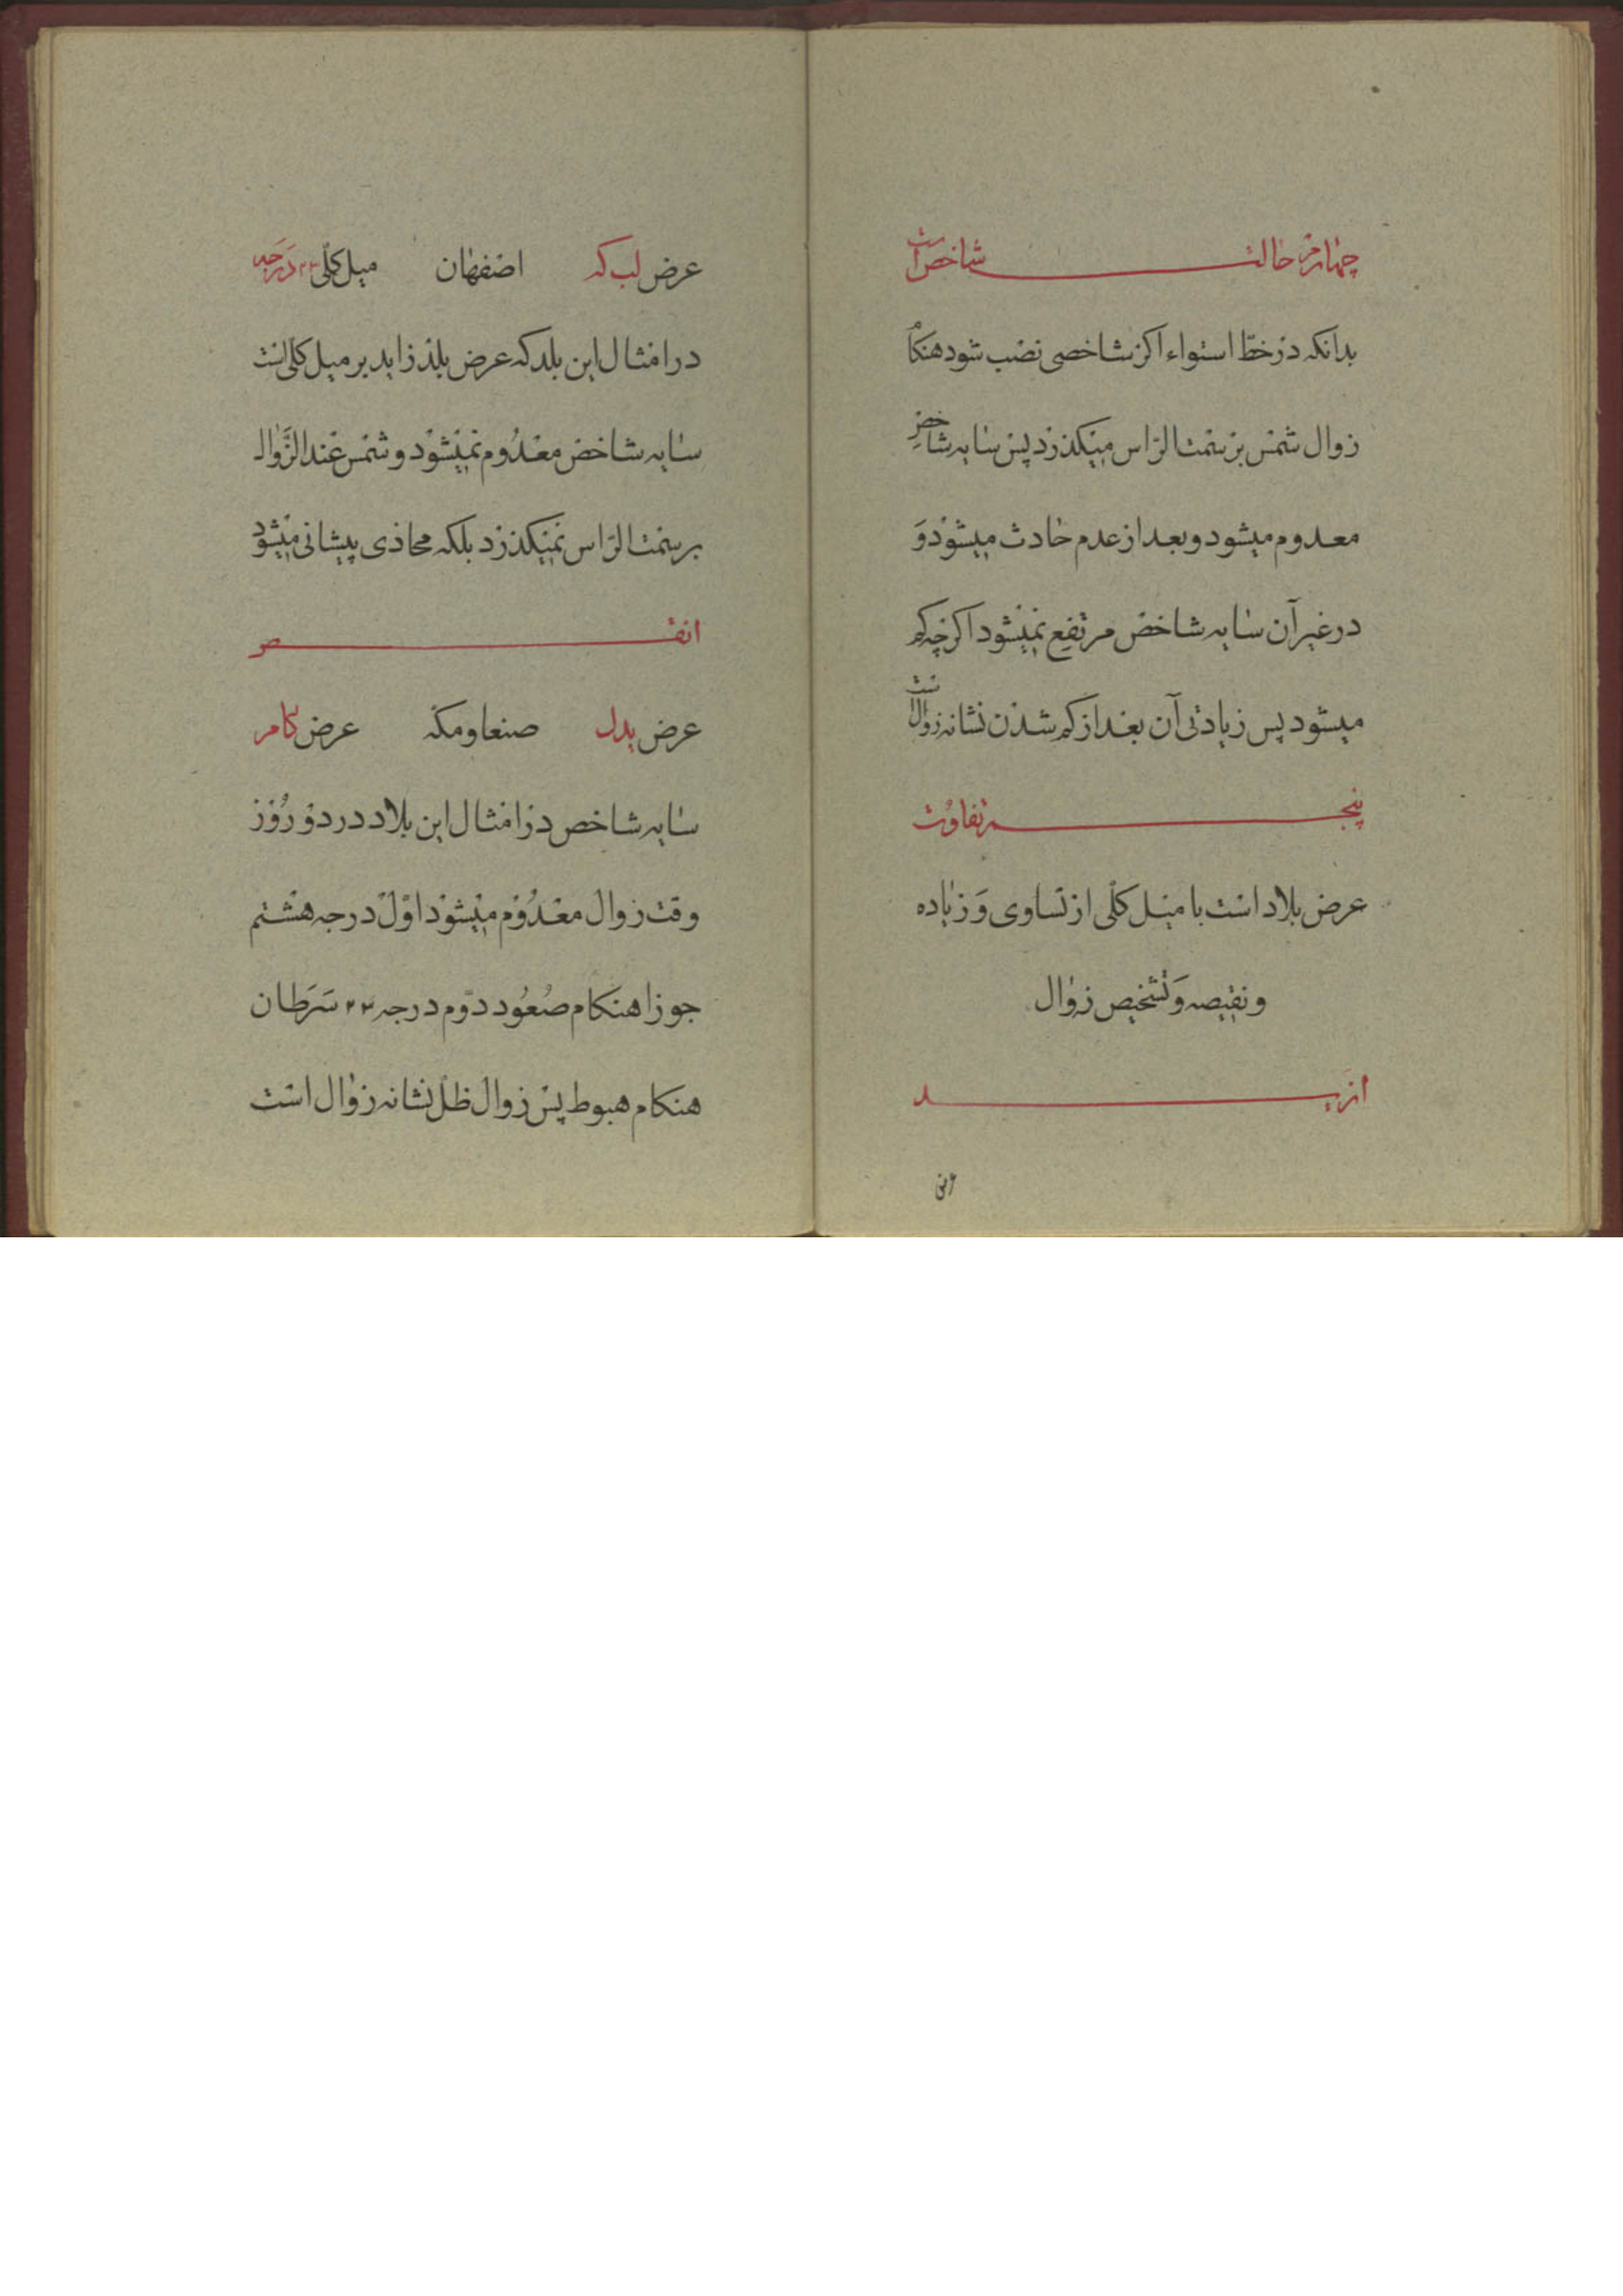 چهارم حالت شاخص است
بدانکه در خط استواء اکر شاخصی نصب شود هنکام
زوال شمس بر سمت الراس میکذرد پس سایه شاخص
معدوم میشود و بعد از عدم حادث میشود و
در غیر آن سایه شاخص مرتفع نمیشود اکرچه کم
میشود پس زیادتی آن بعد از کم شدن نشانه زوال است
پنجم تفاوت
عرض بلاد است با میل کلّی از تساوی و زیاده
و نقیصه و تشخیص زوال
ازید
عرض لب که اصفهان میل کلّی ۲۳ درجه
در امثال این بلد که عرض بلد زاید بر میل کلی است
سایه شاخص معدوم نمیشود و شمس عند الزَّوال
بر سمت الراس نمیکذرد بلکه محاذی پیشانی میشود
انقص
عرض یدل صنعا و مکه عرض کام
سایه شاخص در امثال این بلاد در دو روز
وقت زوال معدوم میشود اوّل درجه هشتم
جوزا هنکام صُعُود دوّم درجه ۲۳ سَرَطان
هنکام هبوط پس زوال ظلّ نشانه زوال است